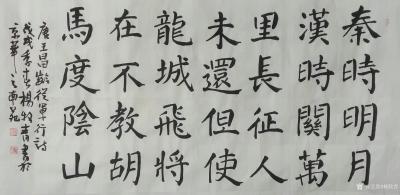 秦時明月
漢時關萬
里長征人
未還但使
龍城飛將
在不教胡
馬度陰山
唐王昌齡從軍行詩
戊戌季春楊牧青書於
京華之南苑